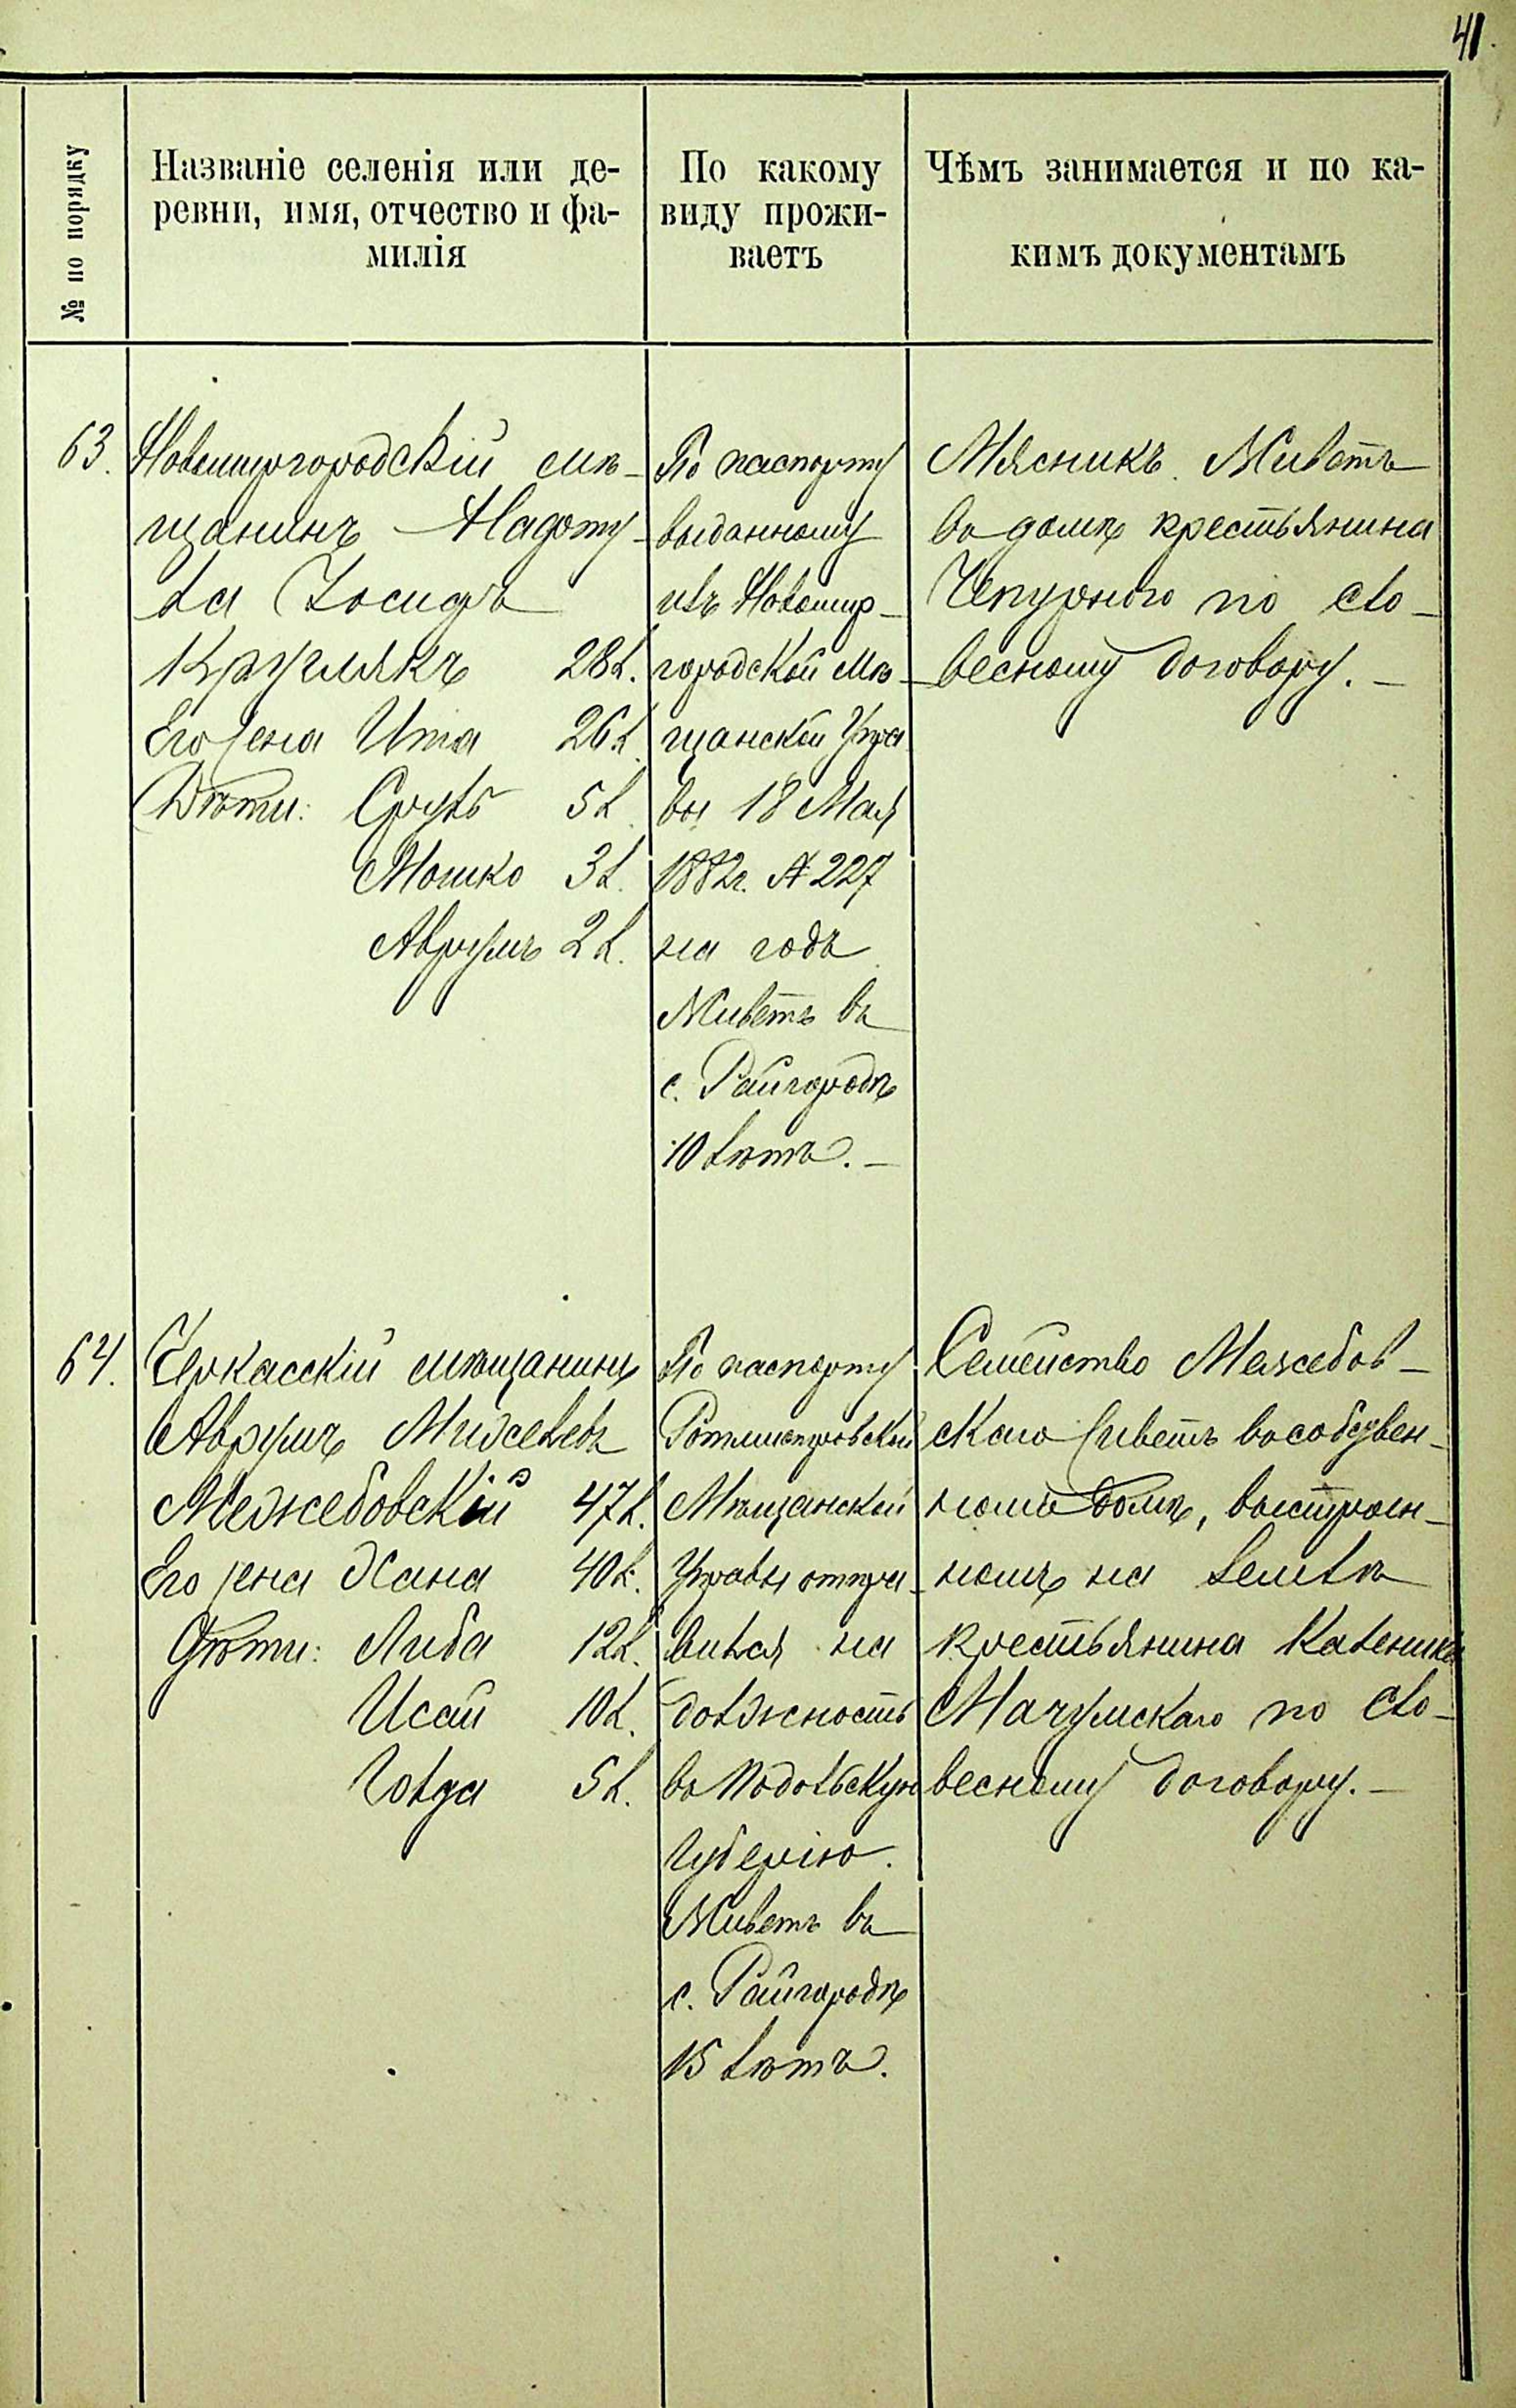 41.
№ по порядку
Названіе селенія или де-
ревни, имя, отчество и фа-
милія
По какому
виду прожи-
ваетъ
Чѣмъ занимается и по ка-
кимъ документамъ
63.
Новомиргородскій мѣ-
щанинъ
ла Іосифъ
Круглякъ 28 л.
Его жена Ита 26 л.
Дѣти: Сруль 5 л.
Мошко 3 л.
Аврумъ 2 л.
По паспорту
выданному
изъ Новомир-
городской мѣ-
щанской Упра
вы 18 Мая
1882 г. № 227
на годъ.
Живетъ въ
с. Райгородѣ
10 лѣтъ. –
Мясникъ. Живетъ
въ домѣ крестьянина
Чепурного по сло-
весному договору. –
64.
Черкасскій мѣщанинъ
Аврумъ
Межебовскій 47 л.
Его жена Хана 40 л.
Дѣти: Либа 12 л.
Исай 10 л.
Голда 5 л.
По паспорту
Ротмистровской
Мѣщанской
Управы отпра-
вился на
должность
въ Подольскую
Губернію.
Живетъ въ
с. Райгородѣ
15 лѣтъ.
Семейство Межебов-
скаго живетъ въ собствен-
номъ домѣ, выстроен-
номъ на землѣ
крестьянина Каленика
Мачулскаго по сло-
весному договору. –